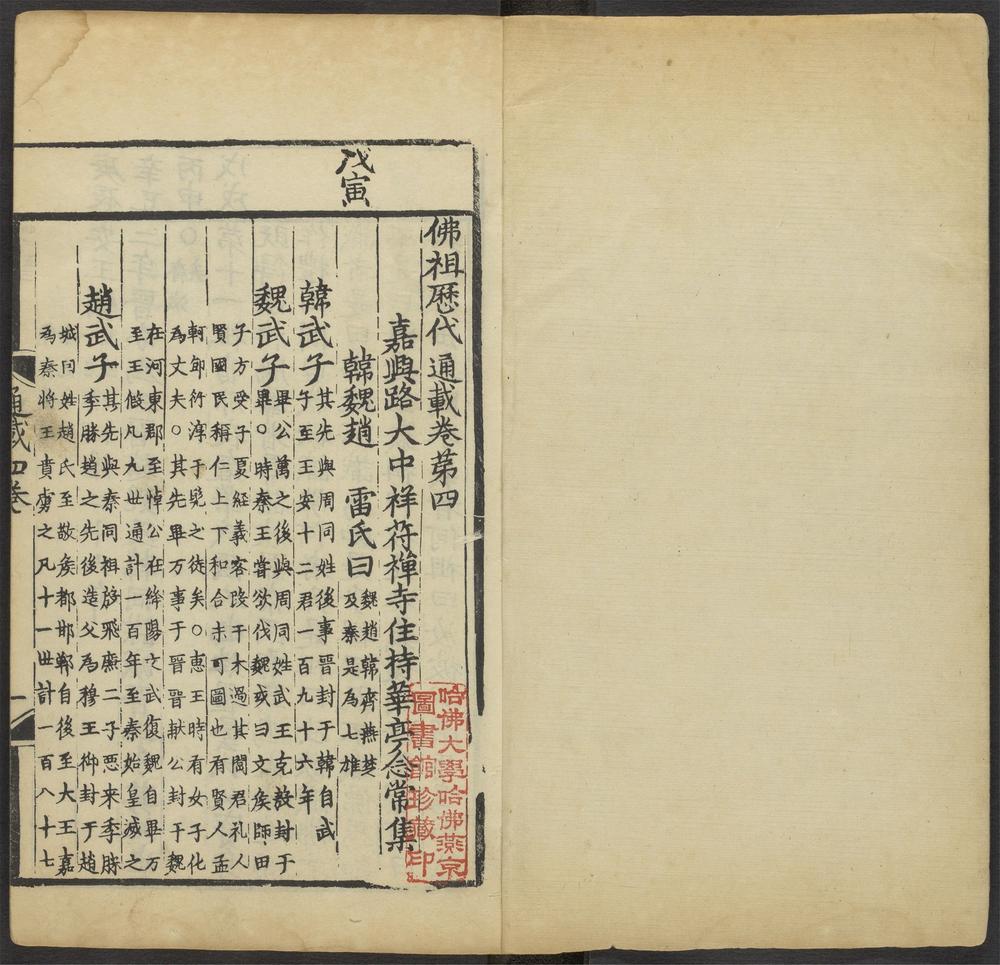 戊寅
佛祖歷代通載卷第四
嘉興路大中祥符禪寺住持華亭念常集
韓魏趙 雷氏曰 魏趙韓齊燕楚
及秦是為七雄
韓武子 其先與周同姓後事晉封于韓自武
子至王安十二君一百九十六年
魏武子 畢公萬之後與周同姓武王克殷封于
畢〇時秦王嘗欲伐魏或曰文侯師田
子方受子夏經義客段干木過其閭君礼人
賢國民稱仁上下和合未可圖也有賢人孟
軻鄒衍淳于髡之徒矣〇惠王時有女子化
為丈夫〇其先畢万事于晉晉献公封于魏
在河東郡至悼公在絳陽文武復魏自畢万
至王假凡九世通計一百年至秦始皇滅之
趙武子 其先與秦同祖於飛廉二子惡来季勝
季勝趙之先後造父為穆王御封于趙
城曰姓趙氏至敬侯都邯鄲自後至大王嘉
為秦將王賁虜之凡十一世計一百八十七
通載四卷
一
哈佛大學哈佛燕京
圖書館珍藏印